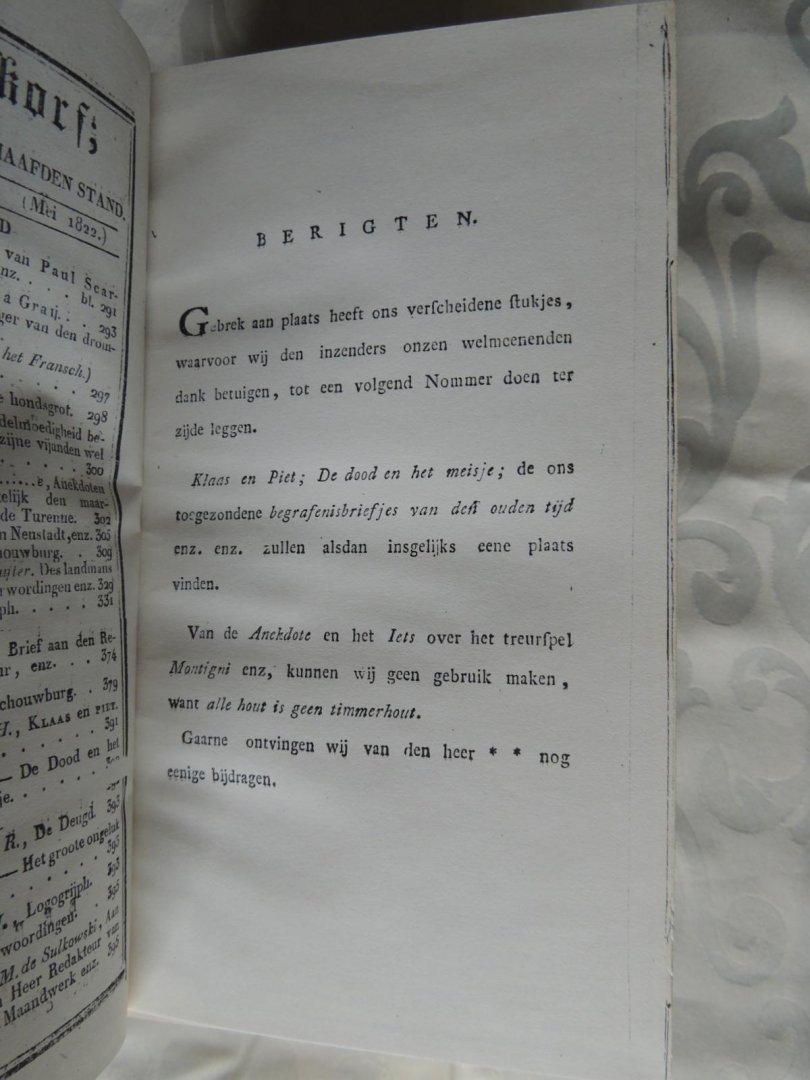 korf;
HAAFDEN STAND.
(Mei 1822.)
van Paul Scar-
nz. . . . bl. 291
a Graij. . . 293
ger van den drom-
het Fransch.)
. . . . . 297
e hondsgrot. 298
delmoedigheid be-
zijne vijanden wel
. . . . . 300
e, Anekdoten
kelijk den maar-
de Turenne. 302
n Neustadt, enz. 305
chouwburg. . 309
Des landmans
wordingen enz. 329
ph. . . . . 331
Brief aan den Re-
ur, enz. . . 374
chouwburg. . 379
H., KLAAS en PIET.
. . . . . 391
— De Dood en het
je. . . . .
R., De Deugd. 393
— Het groote ongeluk
. . . . . 395
Logogrijph. 393
woordingen. 395
M. de Sulkowski, Aan
n Heer Redakteur van
Maandwerk enz. 396
BERIGTEN.
Gebrek aan plaats heeft ons verſcheidene ſtukjes,
waarvoor wij den inzenders onzen welmeenenden
dank betuigen, tot een volgend Nommer doen ter
zijde leggen.
Klaas en Piet; De dood en het meisje; de ons
toegezondene begrafenisbriefjes van den ouden tijd
enz. enz. zullen alsdan insgelijks eene plaats
vinden.
Van de Anekdote en het Iets over het treurſpel
Montigni enz, kunnen wij geen gebruik maken,
want alle hout is geen timmerhout.
Gaarne ontvingen wij van den heer * * nog
eenige bijdragen.